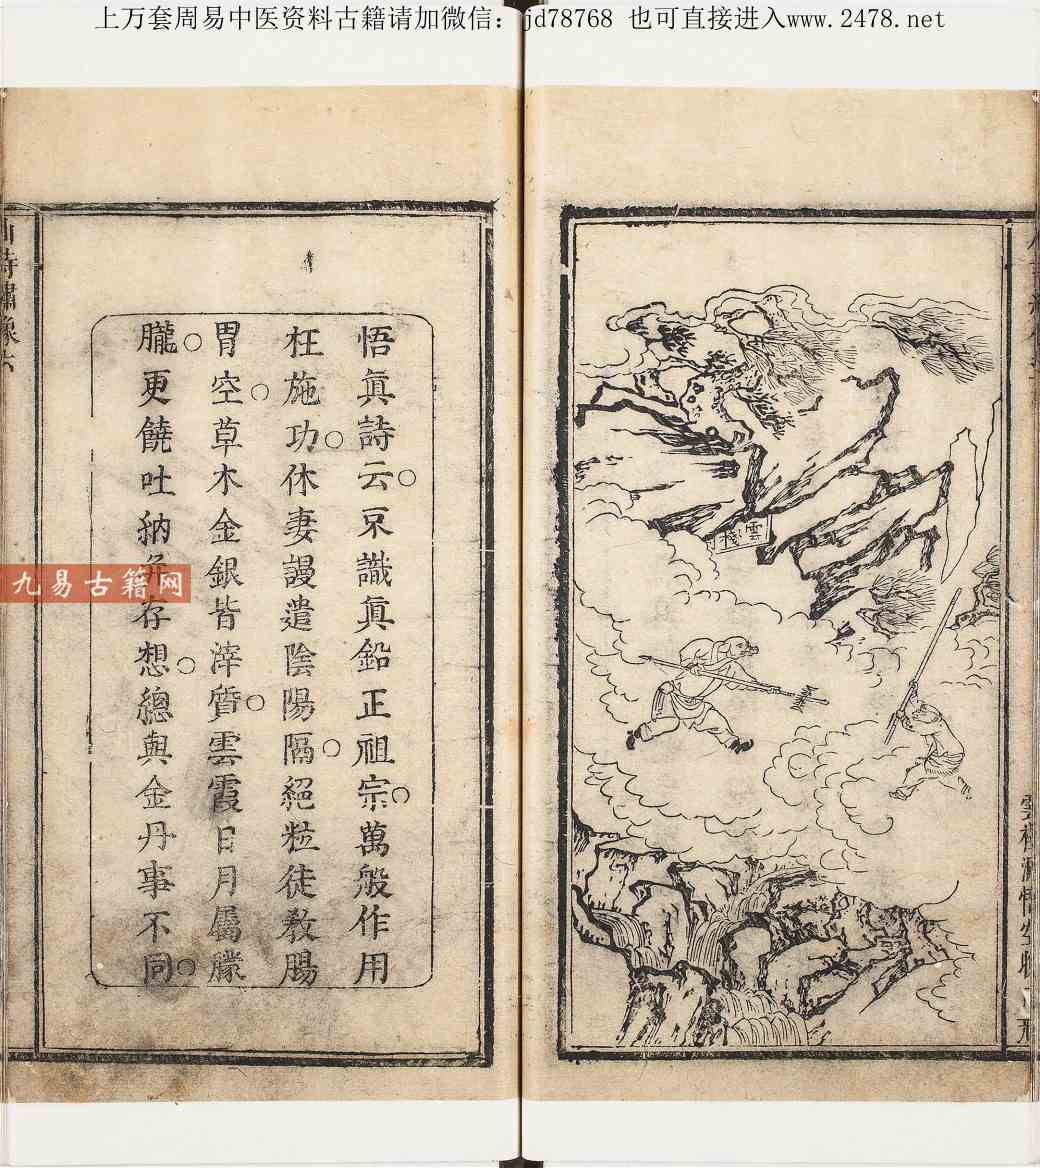 上万套周易中医资料古籍请加微信：jd78768 也可直接进入www.2478.net
雲棧
悟眞詩云○不識眞鉛正祖宗○萬般作用
枉施功○休妻謾遣陰陽隔○絕粒徒教腸
胃空○草木金銀皆滓質○雲霞日月屬朦
朧○更饒吐納并存想○總與金丹事不同○
九易古籍网